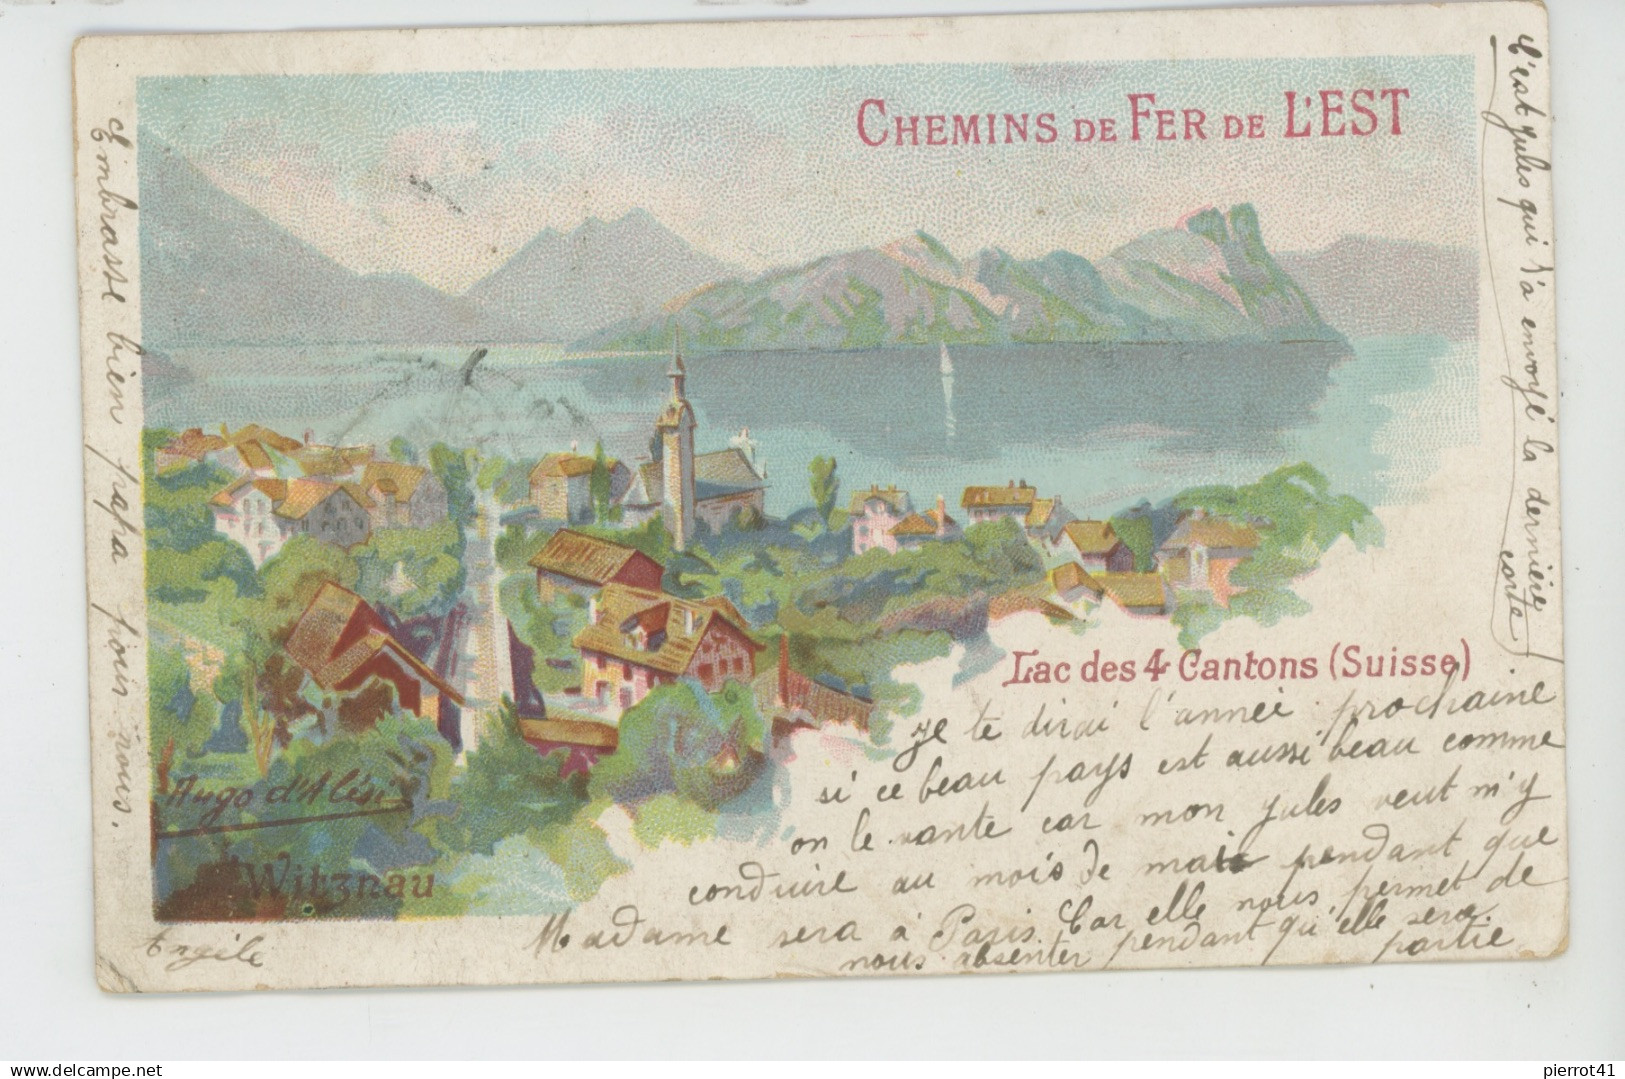 CHEMINS DE FER DE L'EST
Lac des 4 Cantons (Suisse)
je te dirai l'année prochaine
si ce beau pays est aussi beau comme
on le vante car mon jules veut m'y
conduire au mois de mai pendant que
Madame sera à Paris Car elle nous permet de
nous absenter pendant qu'elle sera
partie
C'est jules qui t'a envoyé la dernière
carte
Embrasse bien papa pour nous.
Hugo d'Alési
Witznau
pierrot41
delcampe.net